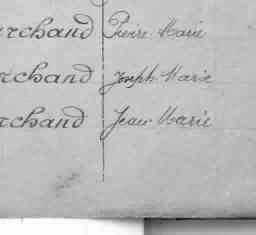 rchand Pierre Marie
rchand Joseph Marie
rchand Jean Marie